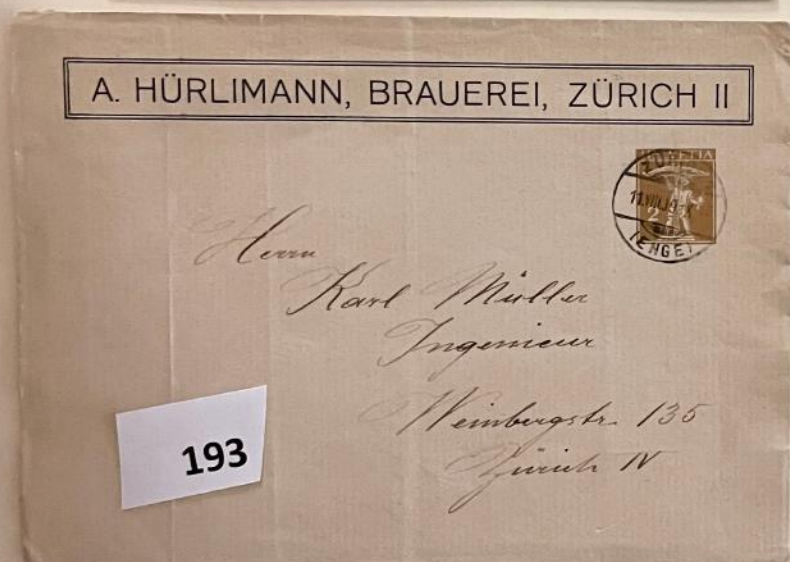 A. HÜRLIMANN, BRAUEREI, ZÜRICH II
HELVETIA
2
(ENGE)
Herrn
Karl Müller
Ingenieur
Weinbergstr. 135
Zürich IV
193